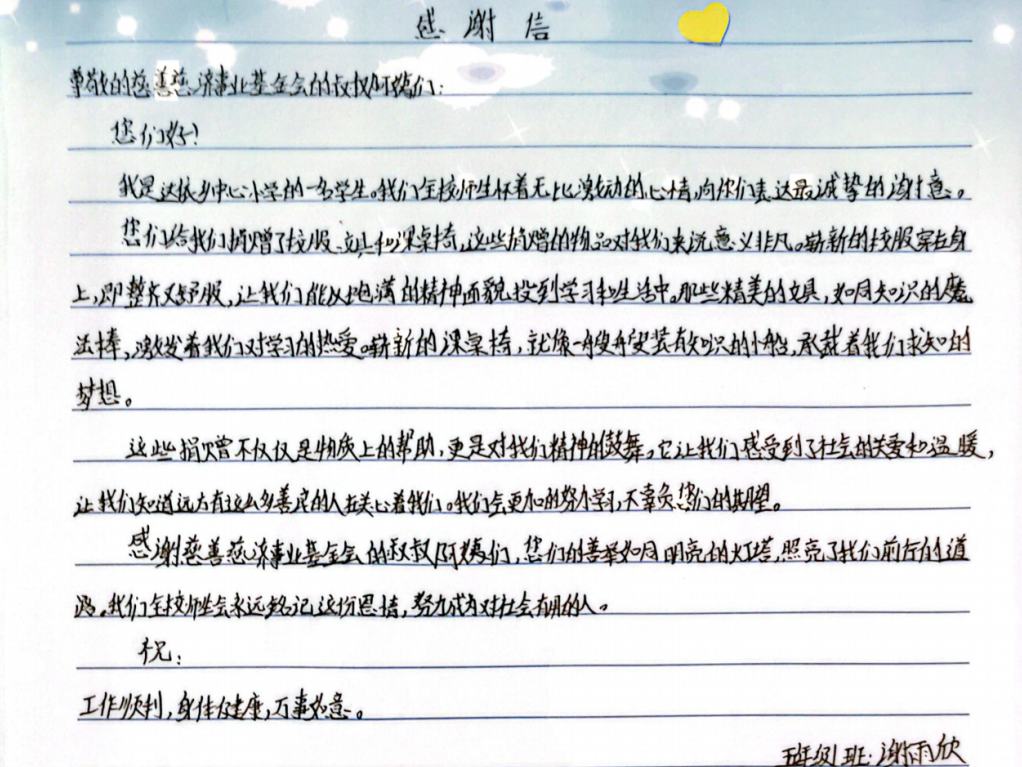 感谢信
尊敬的慈善慈济事业基金会的叔叔阿姨们:
您们好!
我是达依乡中心小学的一名学生。我们全校师生怀着无比激动的心情,向你们表达最诚挚的谢意。
您们给我们捐赠了校服、文具和课桌椅,这些捐赠的物品对我们来说意义非凡。崭新的校服穿在身
上,即整齐又舒服,让我们能以饱满的精神面貌投到学习和生活中。那些精美的文具,如同知识的魔
法棒,激发着我们对学习的热爱。崭新的课桌椅,就像一艘艘安装有知识的小船,承载着我们求知的
梦想。
这些捐赠不仅仅是物质上的帮助,更是对我们精神的鼓舞。它让我们感受到了社会的关爱和温暖,
让我们知道远方有这么多善良的人在关心着我们。我们会更加的努力学习,不辜负您们的期望。
感谢慈善慈济事业基金会的叔叔阿姨们,您们的善举如同明亮的灯塔,照亮了我们前行的道
路。我们全校师生会永远铭记这份恩情,努力成为对社会有用的人。
祝:
工作顺利,身体健康,万事如意。
班:谢雨欣